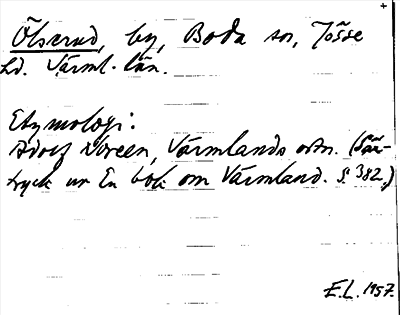 Ölserud, by, Boda sn, Jösse
hd. Värml. län.
Etymologi:
Adolf Noreen, Värmlands ortn. (Sär-
tryck ur En bok om Värmland. S. 382.)
E.L. 1957.